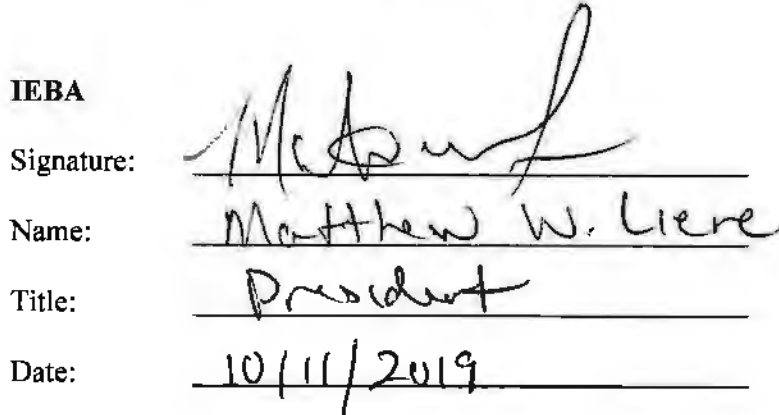 IEBA
Signature:
Name: Matthew W. Liere
Title: President
Date: 10/11/2019